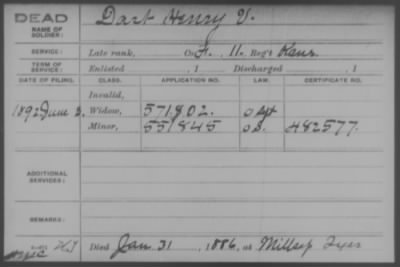 DEAD
NAME OF SOLDIER:
Dart Henry V.
SERVICE:
Late rank, Co. F. 11. Reg't Kans
TERM OF SERVICE:
Enlisted , 1 Discharged , 1
DATE OF FILING. CLASS. APPLICATION NO. LAW. CERTIFICATE NO.
Invalid,
1892 June 3. Widow, 571.802.
Minor, 551.845 482577.
ADDITIONAL SERVICES:
REMARKS:
Died Jan. 31 , 1886, at Millsap